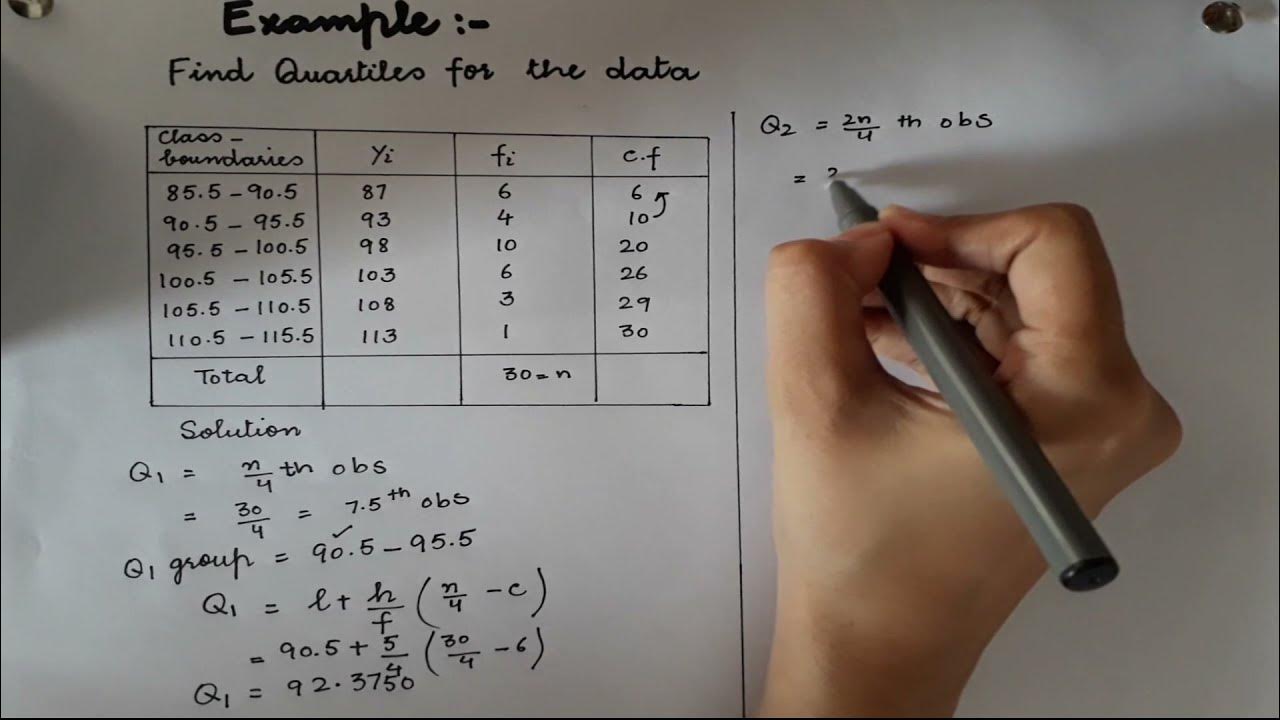 Example :-
Find Quartiles for the data
Class-
boundaries Yi fi c.f
85.5 - 90.5 87 6 6
90.5 - 95.5 93 4 10
95.5 - 100.5 98 10 20
100.5 - 105.5 103 6 26
105.5 - 110.5 108 3 29
110.5 - 115.5 113 1 30
Total 30 = n
Solution
Q1 = n/4 th obs
= 30/4 = 7.5th obs
Q1 group = 90.5 - 95.5
Q1 = l + h/f (n/4 - c)
= 90.5 + 5/4 (30/4 - 6)
Q1 = 92.3750
Q2 = 2n/4 th obs
=